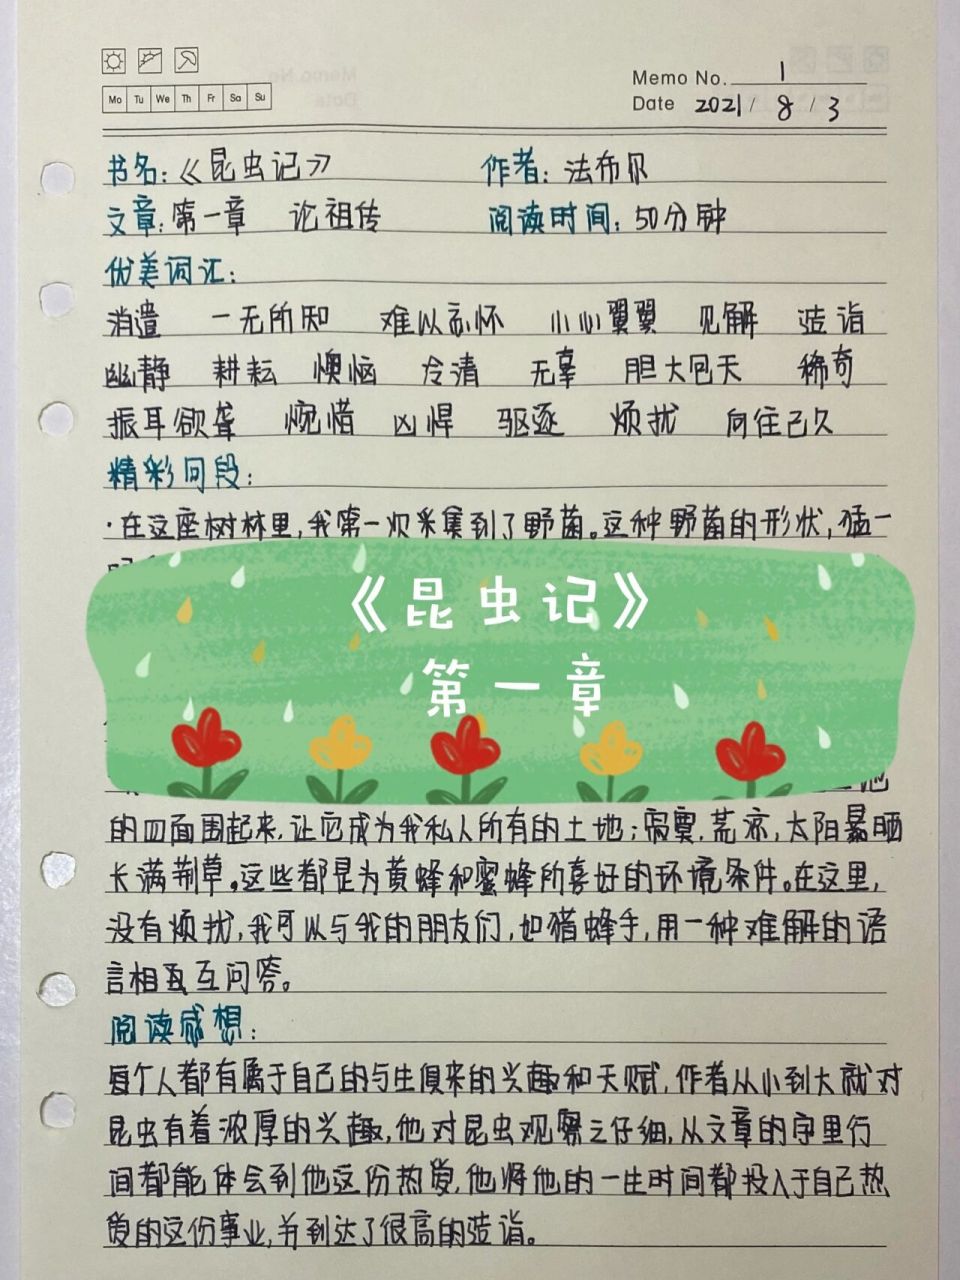 Memo No. 1
Mo Tu We Th Fr Sa Su
Date 2021/8/3
书名:《昆虫记》 作者:法布尔
文章:第一章 论祖传 阅读时间:50分钟
优美词汇:
消遣 一无所知 难以忘怀 小心翼翼 见解 造诣
幽静 耕耘 懊恼 冷清 无辜 胆大包天 稀奇
振耳欲聋 惋惜 凶悍 驱逐 烦扰 向往已久
精彩问段:
·在这座树林里,我第一次采集到了野菌。这种野菌的形状,猛一
《昆虫记》
第一章
的四面围起来,让它成为我私人所有的土地;寂寞,荒凉,太阳暴晒
长满荆草。这些都是为黄蜂和蜜蜂所喜好的环境条件。在这里,
没有烦扰,我可以与我的朋友们,如猎蜂手,用一种难解的语
言相互互问答。
阅读感想:
每个人都有属于自己的与生俱来的兴趣和天赋,作者从小到大就对
昆虫有着浓厚的兴趣,他对昆虫观察之仔细,从文章的字里行
间都能体会到他这份热爱,他将他的一生时间都投入于自己热
爱的这份事业,并到达了很高的造诣。